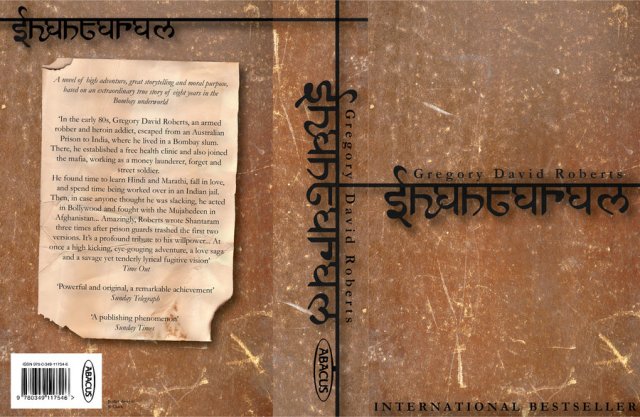 Shantaram
A novel of high adventure, great storytelling and moral purpose,
based on an extraordinary true story of eight years in the
Bombay underworld
'In the early 80s, Gregory David Roberts, an armed
robber and heroin addict, escaped from an Australian
Prison to India, where he lived in a Bombay slum.
There, he established a free health clinic and also joined
the mafia, working as a money launderer, forget and
street soldier.
He found time to learn Hindi and Marathi, fall in love,
and spend time being worked over in an Indian jail.
Then, in case anyone thought he was slacking, he acted
in Bollywood and fought with the Mujahedeen in
Afghanistan... Amazingly, Roberts wrote Shantaram
three times after prison guards trashed the first two
versions. It's a profound tribute to his willpower... At
once a high kicking, eye-gouging adventure, a love saga
and a savage yet tenderly lyrical fugitive vision'
Time Out
'Powerful and original, a remarkable achievement'
Sunday Telegraph
'A publishing phenomenon'
Sunday Times
ISBN 978-0-349-11754-6
9 780349 117546 >
ABACUS
Gregory David Roberts
Shantaram
ABACUS
Gregory David Roberts
Shantaram
INTERNATIONAL BESTSELLER